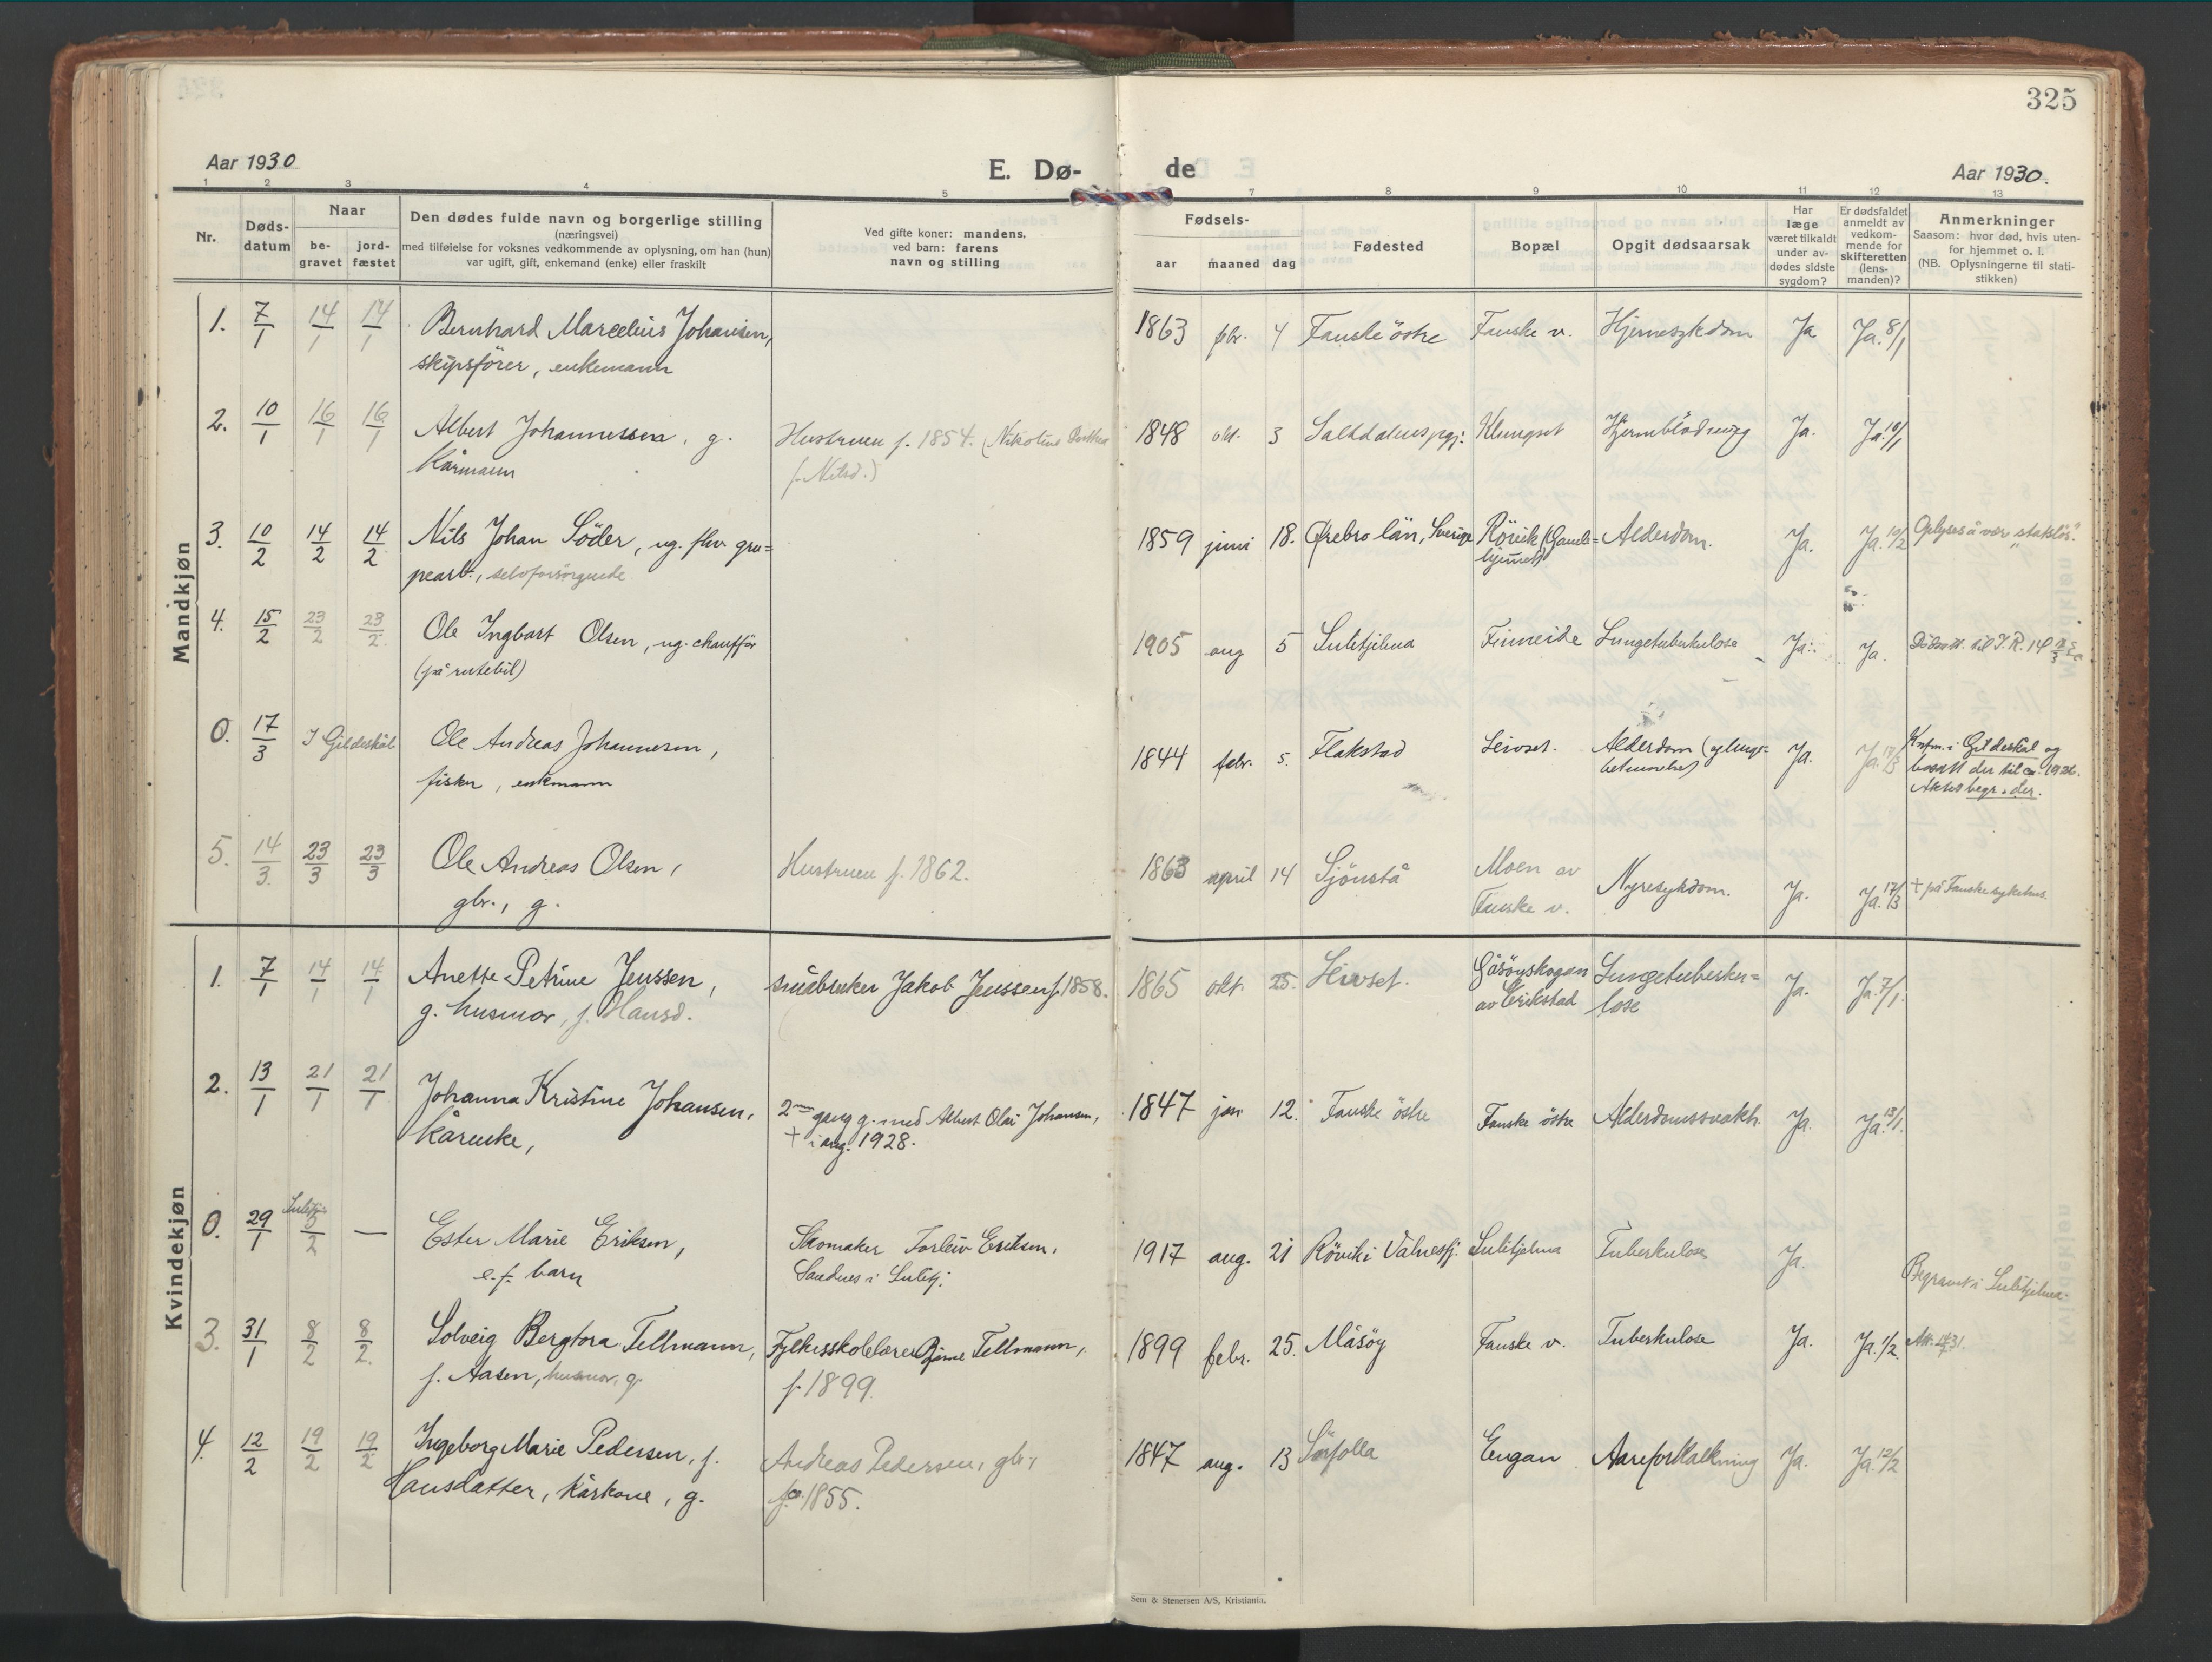 325
Aar 1930
E. Dø-
de
Aar 1930.
1 2 3 4 5 7 8 9 10 11 12 13
Nr.
Døds-
datum
Naar
be-
gravet
jord-
fæstet
Den dødes fulde navn og borgerlige stilling
(næringsvei)
med tilføielse for voksnes vedkommende av oplysning, om han (hun)
var ugift, gift, enkemand (enke) eller fraskilt
Ved gifte koner: mandens,
ved barn: farens
navn og stilling
Fødsels-
aar maaned dag
Fødested
Bopæl
Opgit dødsaarsak
Har
læge
været tilkaldt
under av-
dødes sidste
sygdom?
Er dødsfaldet
anmeldt av
vedkom-
mende for
skifteretten
(lens-
manden)?
Anmerkninger
Saasom: hvor død, hvis uten-
for hjemmet o. l.
(NB. Oplysningerne til stati-
stikken)
Mandkjøn
1. 7/1 14/1 14/1 Bernhard Marcelius Johansen, 1863 febr. 4 Fauske östre Fauske v. Hjernesykdom Ja Ja. 8/1
skipsförer, enkemann
2. 10/1 16/1 16/1 Albert Johannessen, g. Hustruen f. 1854. (Nikoline 1848 okt. 3 Saltdalens pgj: Klungset Hjerneblödning Ja. Ja. 10/1
kårmann f. Nilsd.)
3. 10/2 14/2 14/2 Nils Johan Söder, ug. fhv. gru= 1859 juni 18. Ørebro län, Sverige Rövik (Gamle= Alderdom. Ja. Ja. 10/2 Oplyses å vær "statslös."
pearb., selvforsörgende hjemmet)
4. 15/2 23/2 23/2 Ole Ingbart Olsen, ug. chafför 1905 aug 5 Sulitjelma Finneide Lungetuberkulose Ja. Ja.
(på rutebil)
0. 17/3 I Gildeskål Ole Andreas Johannesen, 1844 febr. 5. Flakstad Leivset. Alderdom (og lunge= Ja. Ja. 17/3 i Gildeskål og
fisker, enkemann betennelse) bosatt der til ca. 192
begr. der.
5. 14/3. 23/3 23/3 Ole Andreas Olsen, Hustruen f. 1862. 1863 april 14 Sjönstå Moen av Nyresykdom. Ja. Ja. 17/3 + på Fauske sykehus.
gbr., g. Fauske v.
Kvindekjøn
1. 7/1 14/1 14/1 Anette Petrine Jenssen, småbruker Jakob Jenssen f. 1858. 1865 okt. 25. Leivset. Gåsöyskogan Lungetuberku= Ja. Ja. 7/1.
g. husmor, f. Hansd. av Erikstad lose
2. 13/1 21/1 21/1 Johanna Kristine Johansen, 2nen gang g. med Albert Olai Johansen, 1847 jan 12. Fauske östre Fauske östre Alderdomssvakh. Ja. Ja. 13/1.
kårenke, + i aug. 1928.
0. 29/1 Sulitj. 5/2 — Ester Marie Eriksen, Skomaker Torleiv Eriksen, 1917 aug. 21 Rövik i Valnesfj. Sulitjelma Tuberkulose Ja.
e.f. barn Sandnes i Sulitj. Begravet i Sulitjelma.
3. 31/1 8/2 8/2. Solveig Bergtora Tellmann, Fylkesskolelærer Bjarne Tellmann, 1899 febr. 25. Måsöy Fauske v. Tuberkulose Ja. Ja. 1/2.
f. Aasen, husmor, g. f. 1899.
4. 12/2 19/2 19/2 Ingeborg Marie Pedersen, f. Andreas Pedersen, gbr., 1847 aug. 13 Sörfolla Engan Aareforkalkning Ja. Ja. 12/2
Hansdatter, kårkone, g. f. 1855.
Sem & Stenersen A/S, Kristiania.